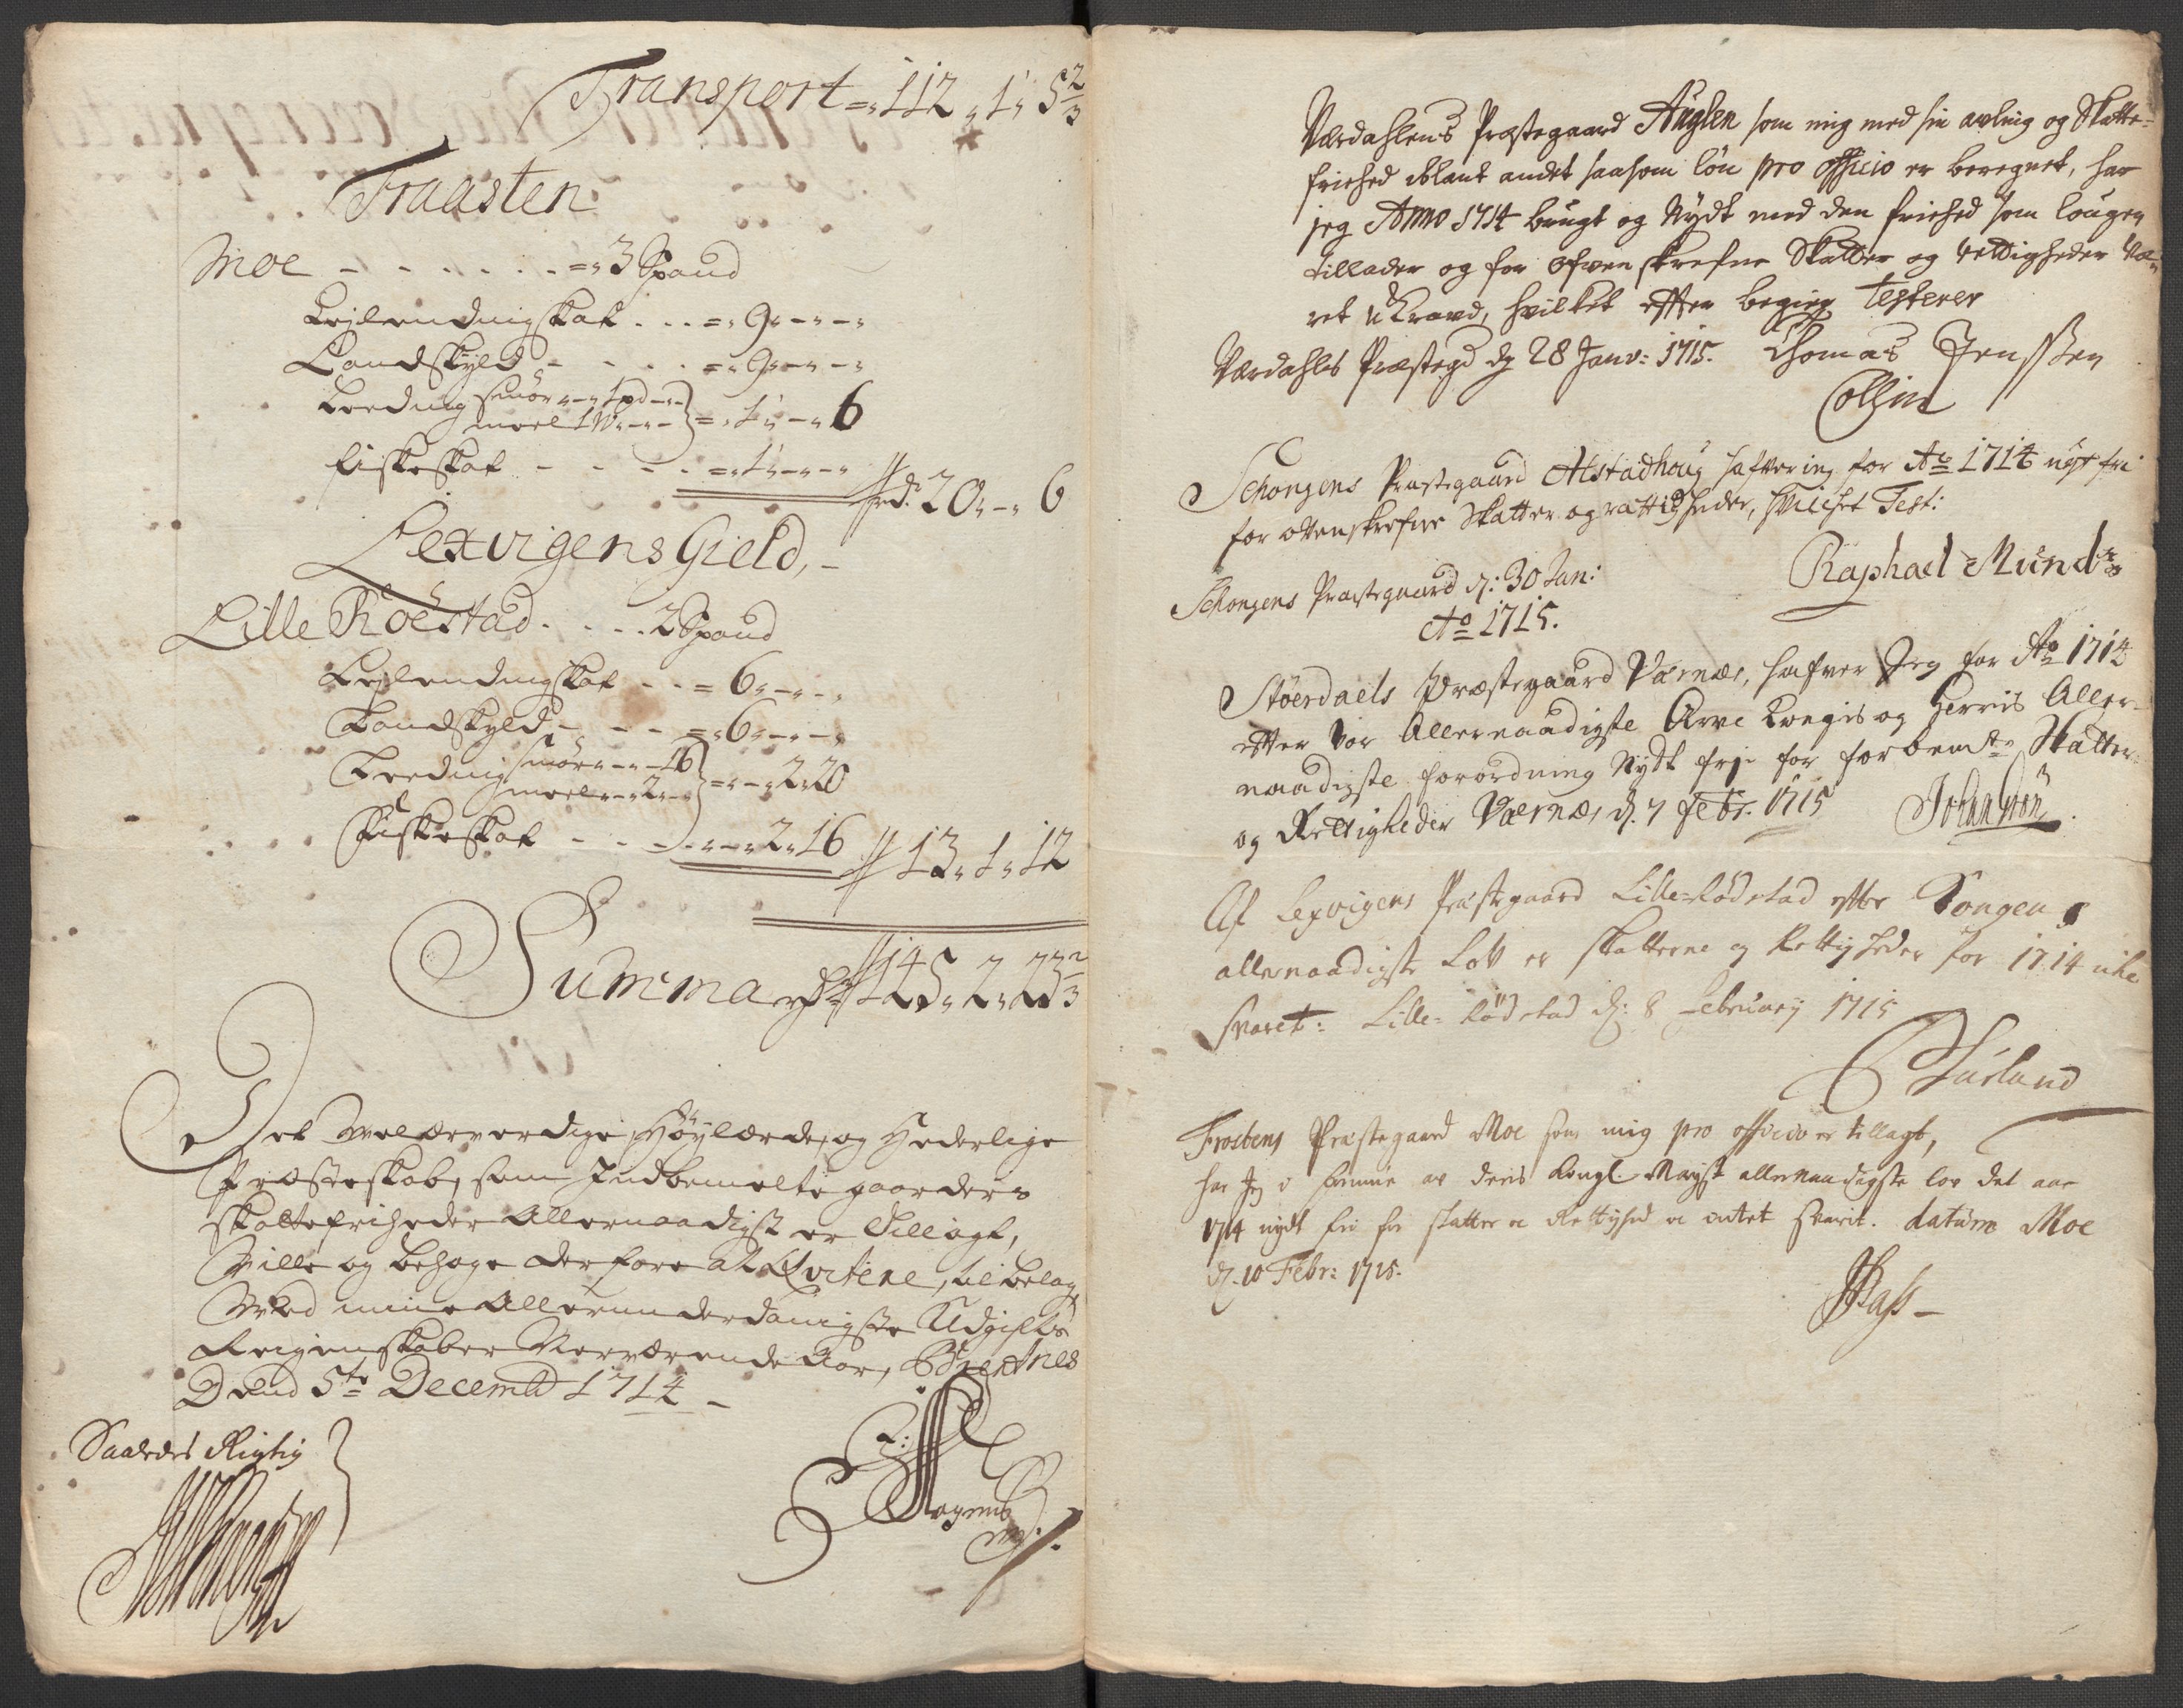 Transport =„ 112„ 1„ 5 2/3
Fraasten
Moe - - - - - - =„ 3 Spand
Leilendingskat . . . =„ 9„ - „ - „
Landskyld - - - . =„ 9„ - „ - „
Leeding smör „ - „ 1 pd - „
meel 1 W„ - „ - =„ 1„ - „ 6
Fiskeskat - - - - =„ 1„ - „ - „ // rd. 20„ - „ 6
Lexvigens Gield, -
Lille Röestad . . . . 2 Spand
Leilendingskat - - = 6„ - „ - „
Landskyld - - - =„ 6„ - „ - „
Leeding smör „ - „ - 16
meel „ - „ 2„ - =„ - „ 2„ 20
Fiskeskat - - - „ - „ 2„ 16 // 13„ 1„ 12
Summa rdr // 145„ 2„ 23 2/3
Det Velærværdige, Höylærde, og Hederlige
Præsteskab, som Indbemelte gaarders
skattefriheder Allernaadigst er Tillagt,
Ville og behage derfore at Qvitere, til belæg
Ved mine Allerunderdanigste Udgifts
Reigenskaber Nerværende Aar,
Dend 5te Decembr 1714 -
Saaledes Rigtig
Værdahlens Præstegaard Auglen som mig med sin avling og Skatte-
friehed iblant andet saasom lön pro officio er beregnet, har
jeg Anno 1714 brugt og Nydt med den friehed som lougen
tillader og for ofvenskrefne Skatter og rettigheder Væ-
ret ukravd, hvilket efter begiering testerer
Værdahls Præstegd dn 28 Janv: 1715. Thomas Jenssen
Collin
Schongens Præstegaard Alstadhoug hafver ieg for Ao 1714 nyt fri
for ovenskrefne Skatter og rettigheder, hvilchet Test:
Raphael Mund
Schongens Præstegaard d: 30 Jan:
Ao 1715.
Stöerdaels Præstegaard Værnæs, hafver Jeg for Ao 1714
efter Vor Allernaadigste Arve Kongis og Herris Aller-
naadigste forordning Nydt frj for forbemte Skatter
og Rettigheder Værnæs d. 7 Febr. 1715
Af Lexvigens Præstegaard Lille-Rödstad efter Kongens
allernaadigste Lov er skatterne og Rettigheder for 1714 icke
svaret: Lille-Rödstad d: 8 February 1715
Frostens Præstegaard Moe som mig pro officio er tillagt,
har Jeg i af deris Kongl. Mayst allernaadigste lov det aar
1714 nydt fri for skatter oc Rettighed oc intet svarit. datum Moe
d. 10 Febr: 1715.